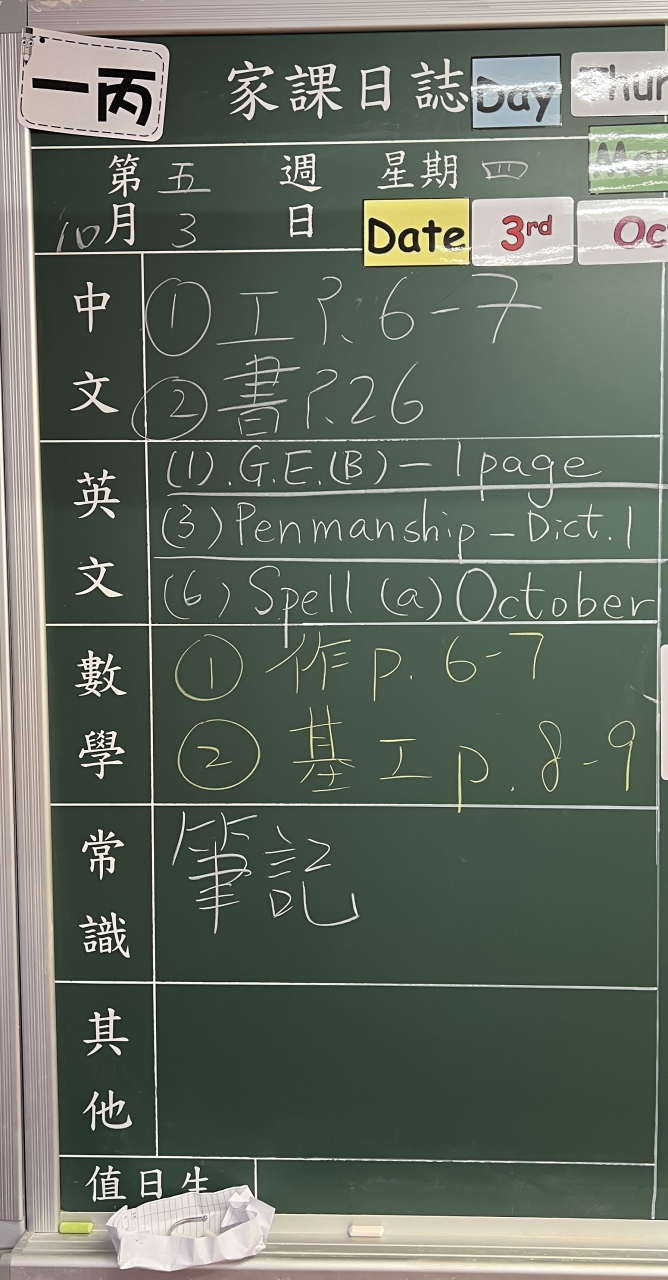 一丙
家課日誌 Day Thur
第五週 星期四 Mon
10月3日 Date 3rd Oc
中文
① 工 P. 6-7
② 書 P. 26
英文
(1). G.E.(B) - 1 page
(3) Penmanship - Dict. 1
(6) Spell (a) October
數學
① 作 p. 6-7
② 基工 p. 8-9
常識
筆記
其他
值日生